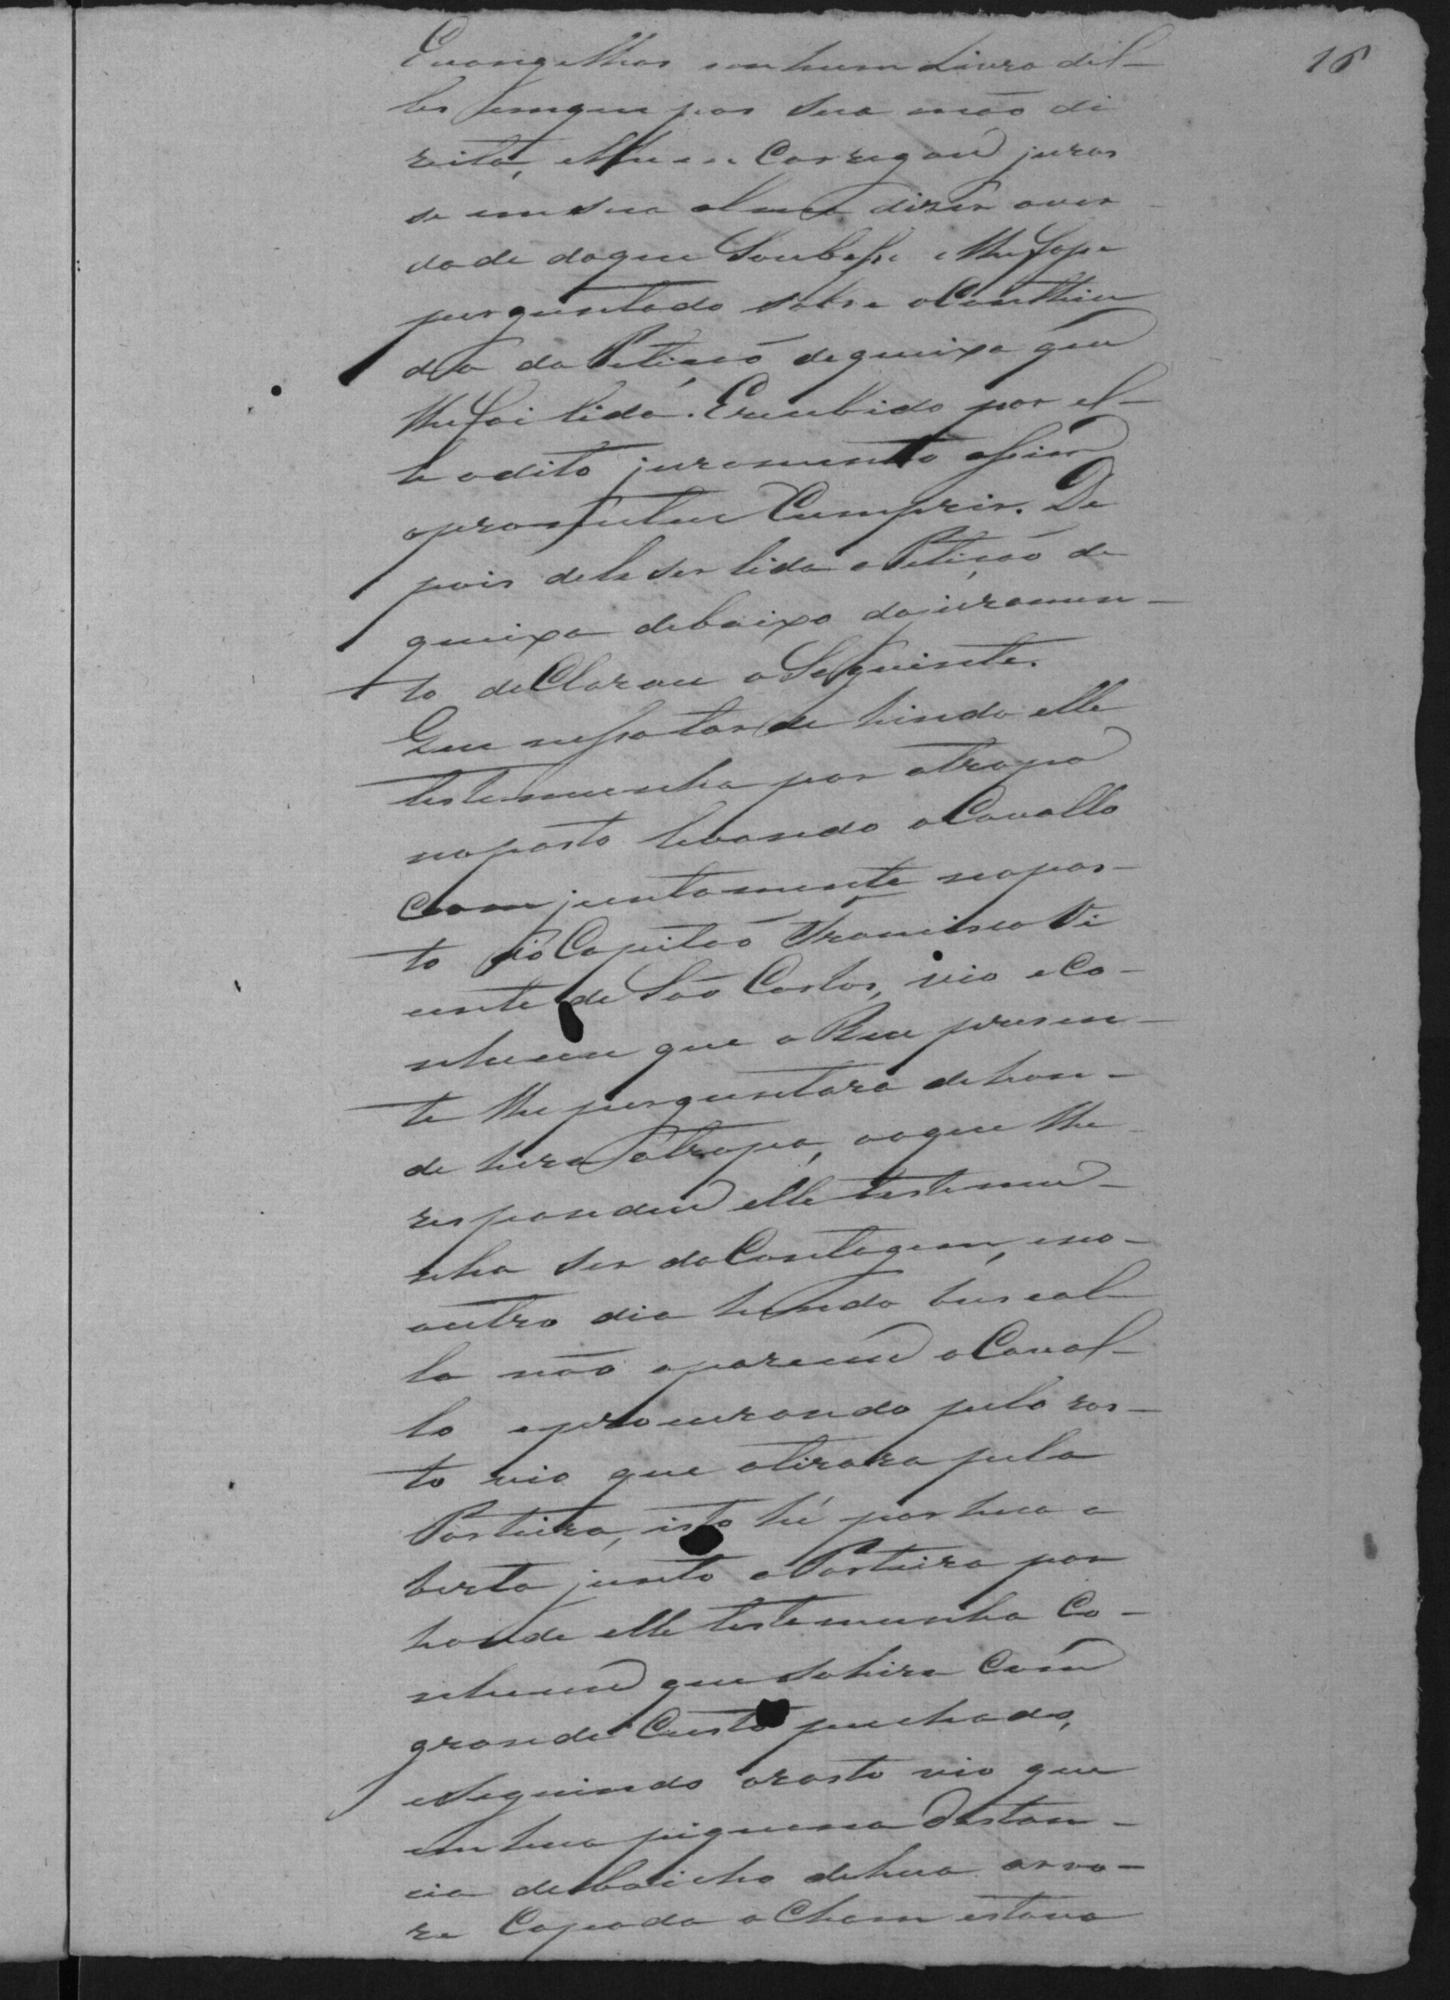 16
Evangelhos em hum Livro del-
les emque pos sua mão di
reita, e lhe en Carregou juras
se em sua alma dizer aver
dade doque Soubesse e lhe fosse
perguntado sobre o Conthiu
do da Petição de queixa que
lhe foi lida. Erecebido por el-
le odito juramento assim
oprometeu Cumprir. De
pois dele ser lida a Petição de
queixa debaixo do juramen-
to deClarou o Seguinte.
Que nessa tarde hindo elle
testemunha por atropa
nopasto levando oCavallo
Com juntamente nopas-
to do Capitão Francisco Vi
cente de São Carlos, vio e Co-
nheceu que o Reu presen-
te lhe perguntara dehon-
de hera atropa, aoque lhe
respondeu elle testemu-
nha ser da Contagem, eno-
outro dia hindo buscal
la não apareceu oCaval-
lo eprocurando pelo ras-
to vio que otirara pela
Porteira, isto hé por hua a
berta junto a Porteira por
honde elle testemunha Co-
nheceu que sahira Com
grande Custo puchado,
eseguindo orasto vio que
em hua piquena Distan-
cia debaicho dehua arvo-
re Copada a Cham estava